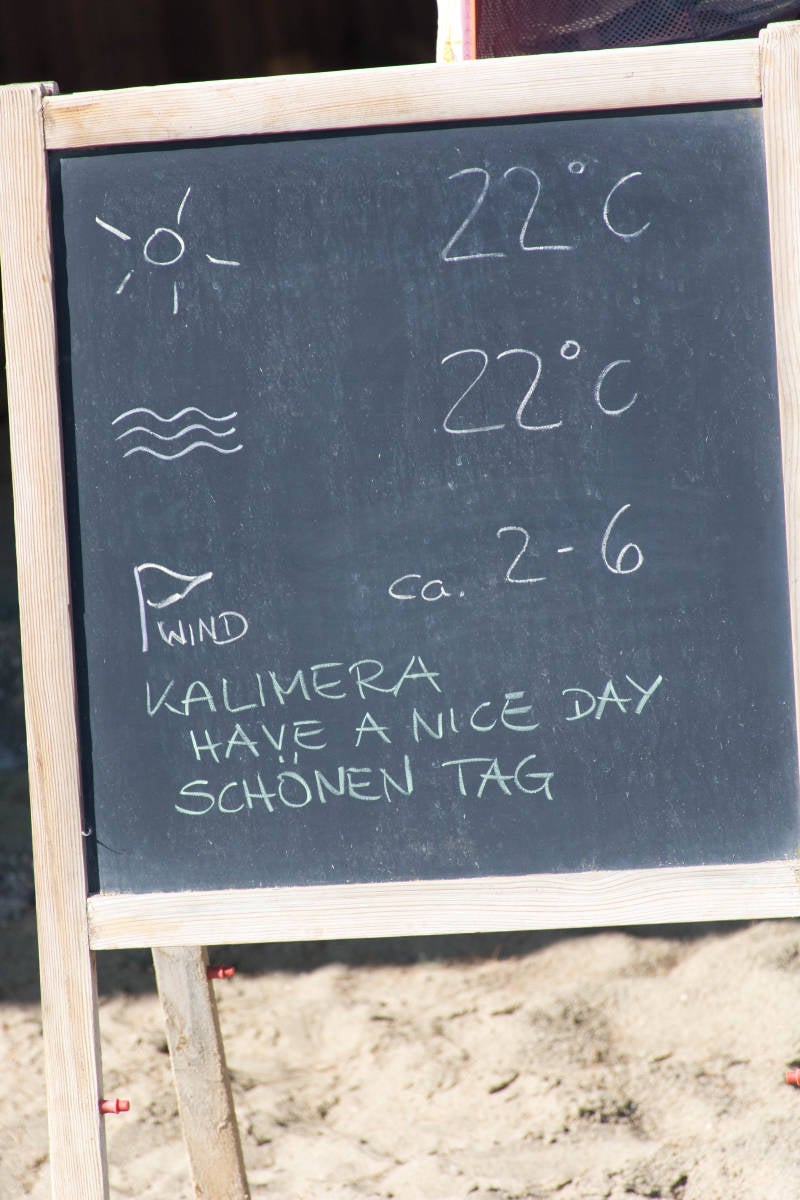 22°C
22°C
WIND ca. 2-6
KALIMERA
HAVE A NICE DAY
SCHÖNEN TAG